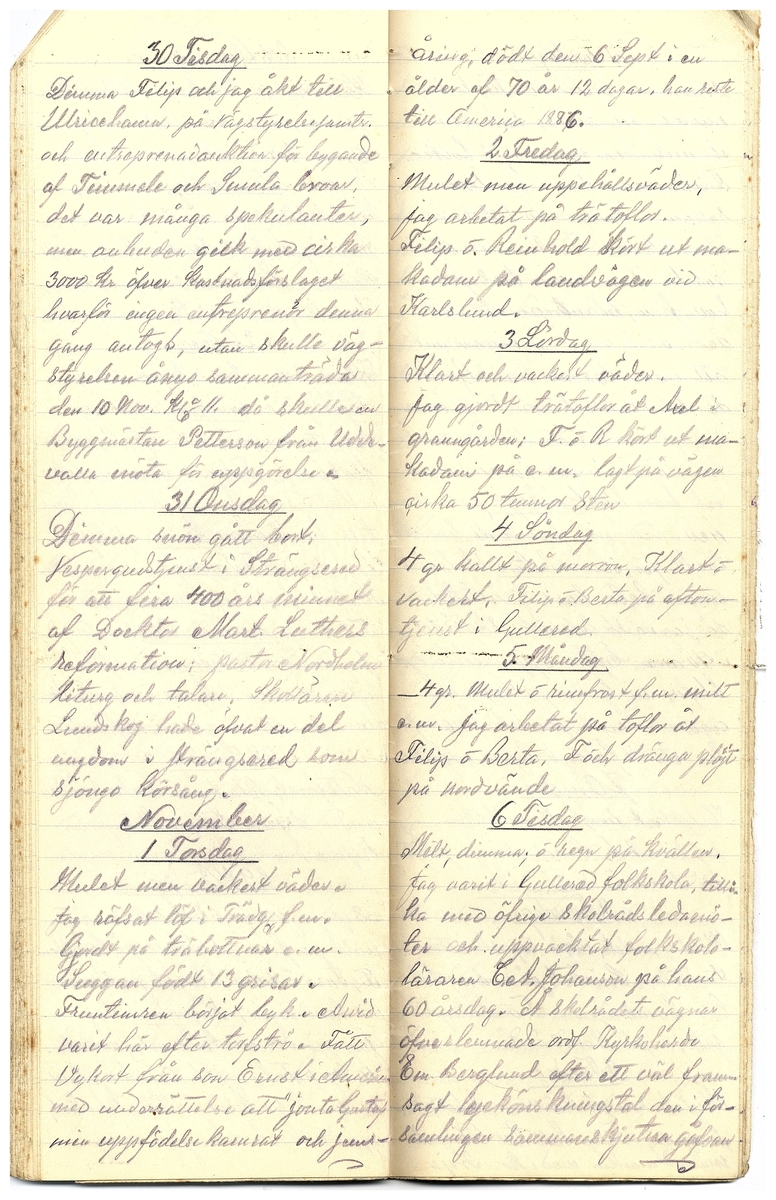 30 Tisdag
Dimma Filip och jag åkt till
Ulricehamn, på Vägstyrelsejamtr.
och entreprenadauktion för bygande
af Timmele och Smula broar,
det var många spekulanter,
men anbuden gick med cirka
3000 Kr öfver Kostnadsförslaget
hvarför ingen entreprenör denna
gång antogs, utan skulle väg-
styrelsen ånyo sammanträda
den 10 Nov. Kl. 11. då skulle en
Byggmästare Petterson från Udde-
valla möta för uppgörelse.
31 Onsdag
Dimma snön gått bort;
Vespergudstjenst i Strängsered
för att fira 400 års minnet
af Docktor Mart. Luthers
reformation; pastor Nordholm
liturg och talare. Skollärare
Lundskog hade öfvat en del
ungdom i Strängsered som
sjöngo körsång.
November
1 Torsdag
Mulet men vackert väder.
Jag räfsat löf i Trädg. f.m.
Gjordt på träbottnar e.m.
Suggan födt 13 grisar.
Fruntimren börjat byk. Arvid
varit här efter torfströ. Fått
Vykort från son Ernst i
med underrättelse att "jonta Gustaf
min uppfödelsekamrat och jemn-
åring, dödt den 6 Sept i en
ålder af 70 år 12 dagar, han reste
till America 1886.
2 Fredag
Mulet men uppehållsväder,
jag arbetat på trätoflor.
Filip o. Reinhold kört ut ma-
kadam på landvägen vid
Karlslund.
3 Lördag
Klart och vackert väder.
Jag gjordt trätoflor åt Axel i
granngården; F. o R kört ut ma-
kadam på e.m. lagt på vägen
cirka 50 tunnor Sten
4 Söndag
4 gr kallt på morron, Klart o
vackert, Filip o Berta på afton-
tjenst i Gullered
5. Måndag
– 4 gr. Mulet o rimfrost f.m. milt
e.m. jag arbetat på toflor åt
Filip o Berta, F och dränga plöjt
på nordvände
6 Tisdag
Milt, dimma, o regn på kvällen.
Jag varit i Gullered folkskola, tilli-
ka med öfrige skolrådsledamö-
ter och uppvacktat folkskolo-
läraren C A Johanson på hans
60 årsdag. Å skolrådets vägnar
öfverlemnade ordf. Kyrkoherde
Em. Berglund efter ett väl fram-
sagt lyckönskningstal den i för-
samlingen sammanskjutna gåfvan